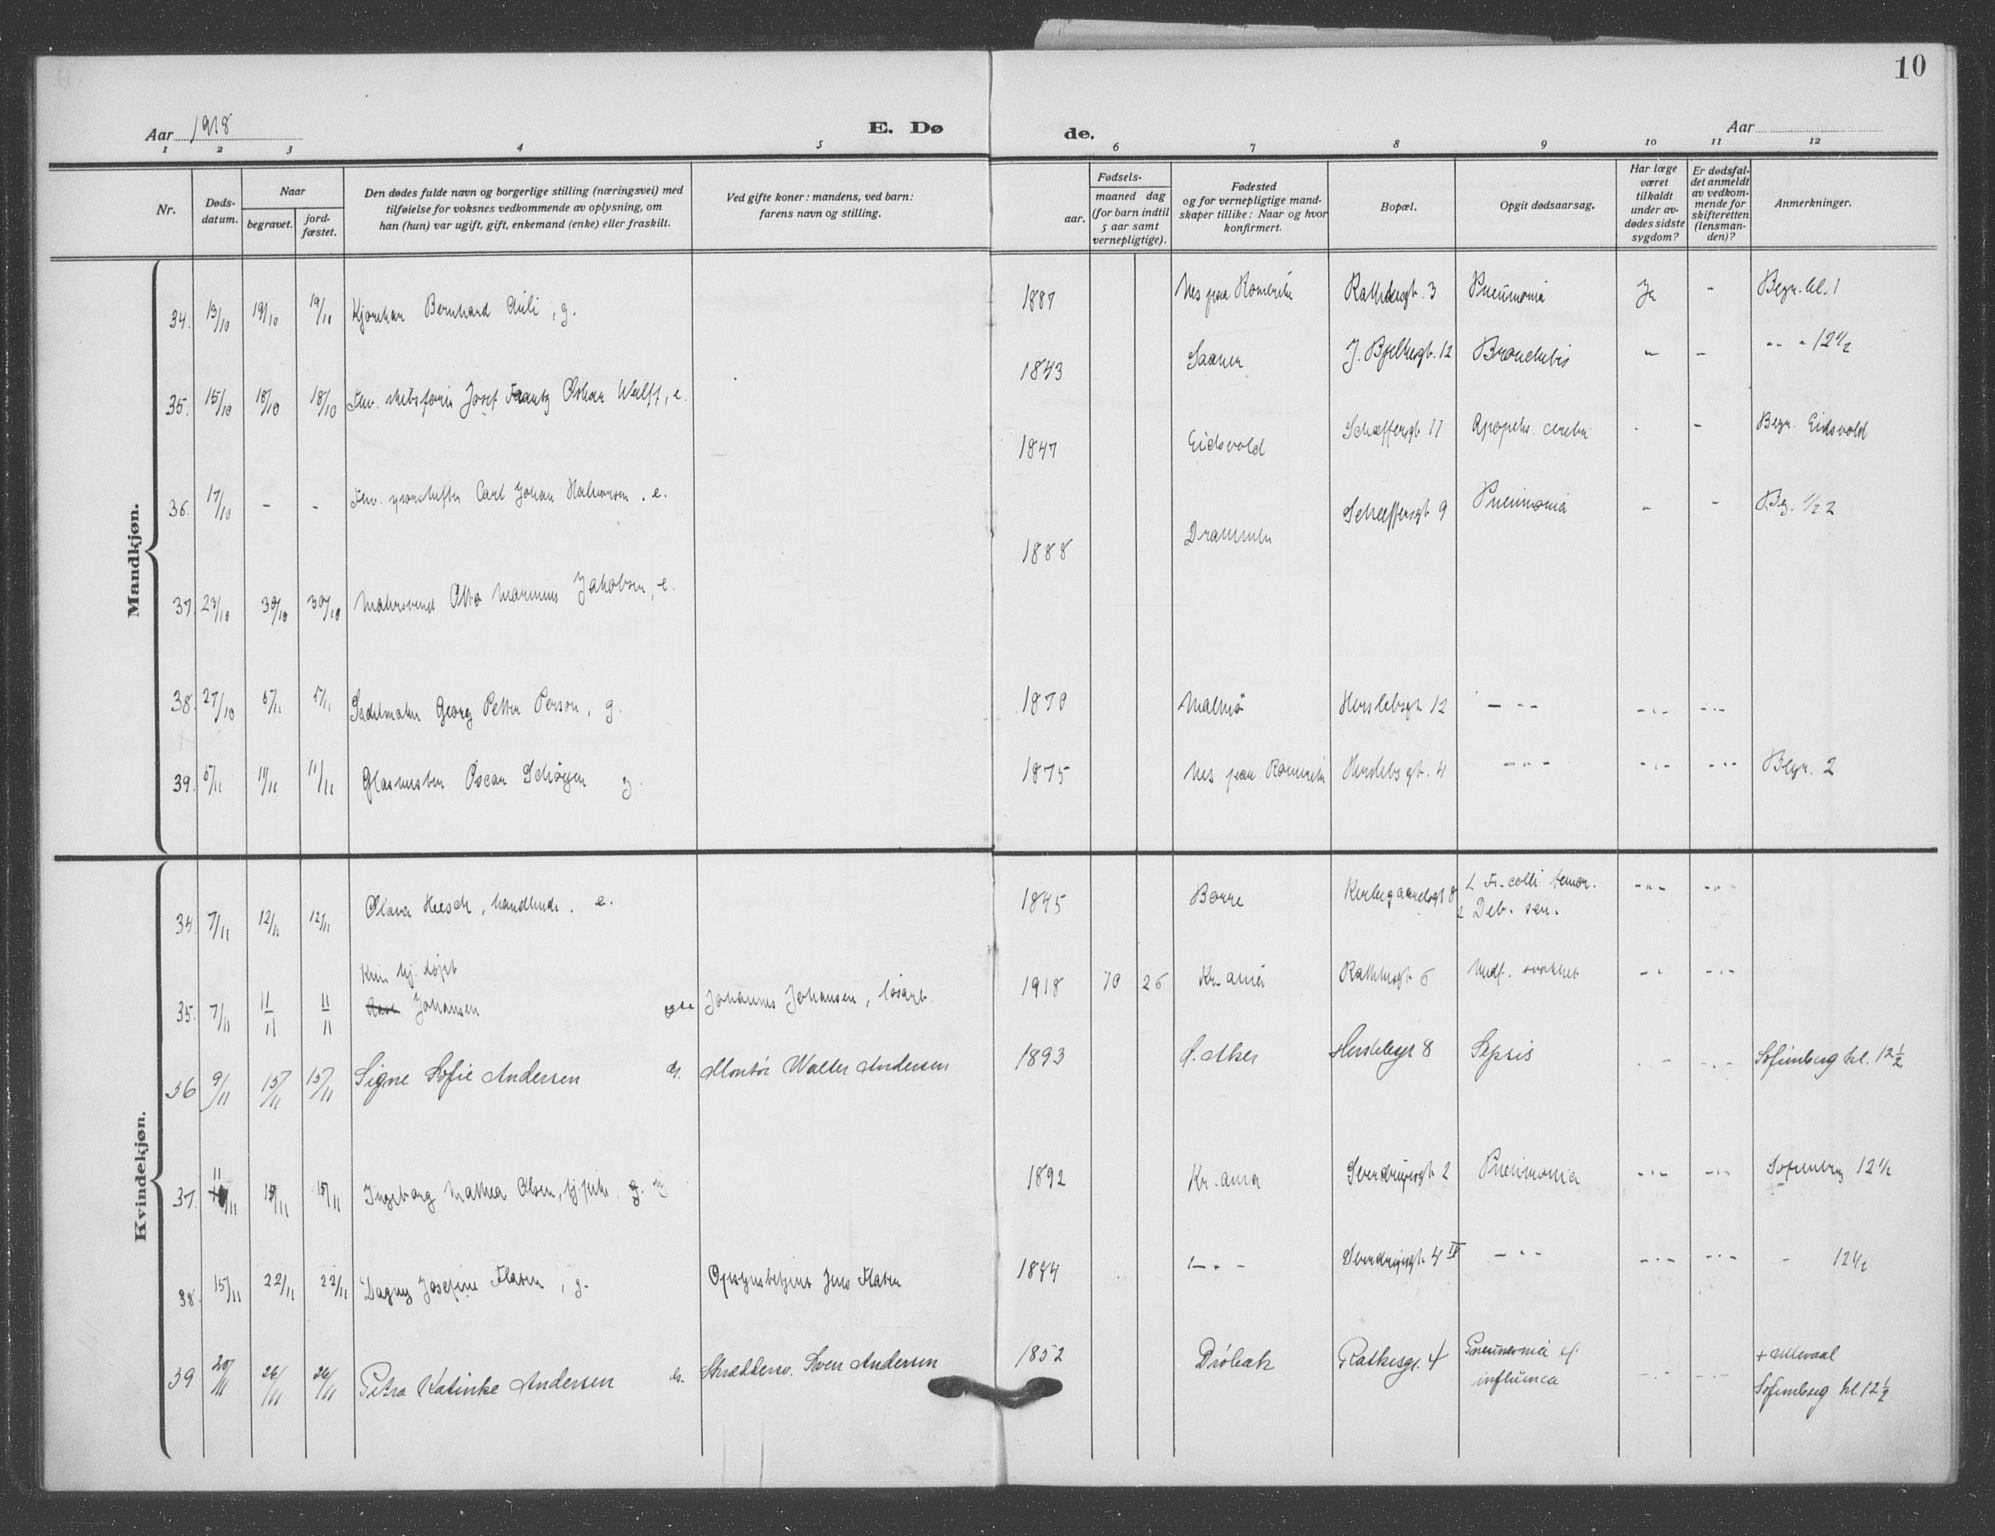 10
Aar 1918 E. Dø de. Aar
1 2 3 4 5 6 7 8 9 10 11 12
Nr.
Døds-
datum.
Naar
begravet.
jord-
fæstet.
Den dødes fulde navn og borgerlige stilling (næringsvei) med
tilføielse for voksnes vedkommende av oplysning, om
han (hun) var ugift, gift, enkemand (enke) eller fraskilt.
Ved gifte koner: mandens, ved barn:
farens navn og stilling.
Fødsels-
aar.
maaned dag
(for barn indtil
5 aar samt
vernepligtige).
Fødested
og for vernepligtige mand-
skaper tillike: Naar og hvor
konfirmert.
Bopæl.
Opgit dødsaarsag.
Har læge
været
tilkaldt
under av-
dødes sidste
sygdom?
Er dødsfal-
det anmeldt
av vedkom-
mende for
skifteretten
(lensman-
den)?
Anmerkninger.
Mandkjøn.
34. 13/10 19/10 19/10 Bernhard , g. 1887 Nes paa Romerike 3 Pneumonia Ja - Begr. kl. 1
35. 15/10 18/10 18/10 Josef Frantz Oskar Wulff, e. 1843 Saaner J. Bjelkesgt. 12 Bronchitis - - - - - 12 1/2
36. 17/10 - - Carl Johan Halvorsen, e. 1847 Eidsvold Schæffersgt 11 Apopleks. cerebri - - Begr. Eidsvold
37. 23/10 30/10 30/10 Otto Marinius Jakobsen, e. 1888 Drammen Schæffersgt 9 Pneumonia - - Bg. 1/2 2
38. 27/10 5/11 5/11 Sadelmaker Georg Petter Person, g. 1870 Malmø Herslebsgt 12 - " - - " - - " -
39. 5/11 11/11 11/11 Glasmester Oscar g. 1875 Nes paa Romerike Herslebsgt. 4 - " - - " - - " - Begr. 2
Kvindekjøn.
34. 7/11 12/11 12/11 Olava Heesch, handlende. e. 1845 Borre 1 Fr. colli femor. - " - - " -
2 Deb. sen.
35. 7/11 11/11 11/11 døpt
Johansen Johannes Johansen, løsarb. 1918 10 26 Kr.ania 6 Medf. svakhet - " - - " -
36 9/11 15/11 15/11 Signe Sofie Andersen g. Montør Walter Andersen 1893 Ø. Aker Herslebsgt 8 Sepsis - " - - " - Sofienberg kl. 12 1/2
37. 11/11 15/11 15/11 Ingeborg Mathea Olsen, 1892 Kr.ania 2 Pneumonia - " - - " - Sofienberg 12 1/2
38. 15/11 22/11 22/11 Dagny Josefine Flaten, g. Opsynsbetjent Jens Flaten 1894 - " - 4 IV - " - - " - - " - - 12 1/2
39 20/11 26/11 26/11 Petra Katinke Andersen g. Skræddersv. Sven Andersen 1852 Drøbak Rathkesgt. 4 Pneumonia & - " - - " - + Ullevaal
influenca Sofienberg kl 12 1/2